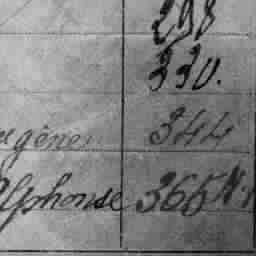 298
330.
ugène 344
Alphonse 366